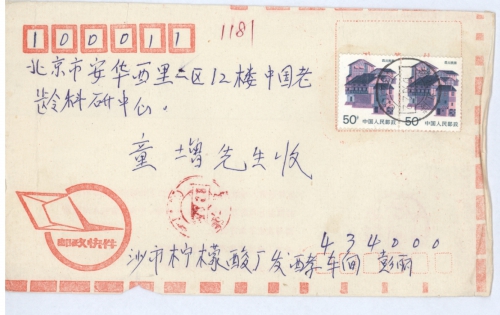 100011
1181
北京市安华西里二区12楼中国老
龄科研中心。
童增先生收
50分
中国人民邮政
50分
中国人民邮政
邮政快件
434000
沙市柠檬酸厂发酵车间 彭丽